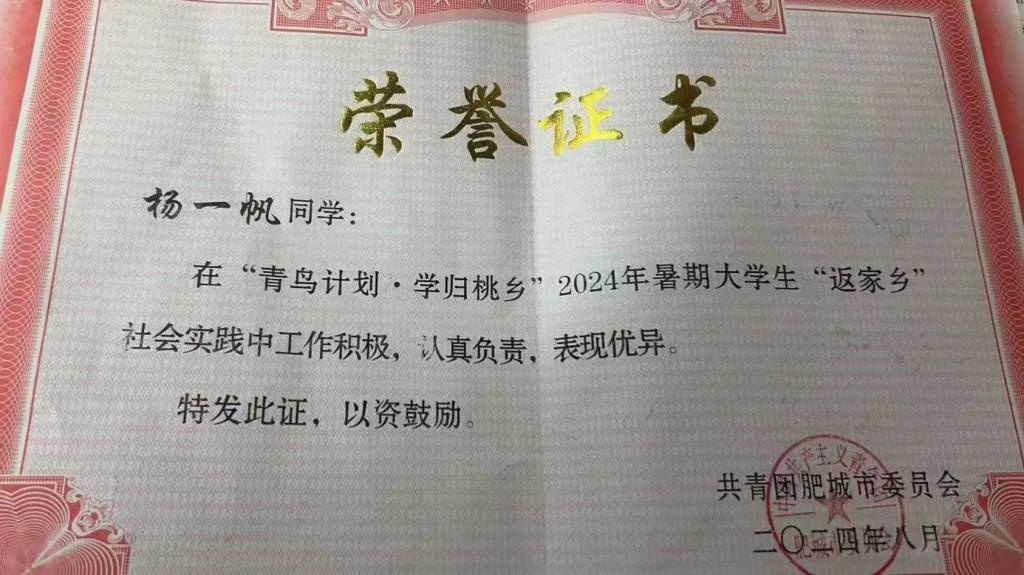 荣誉证书
杨一帆同学：
在“青鸟计划·学归桃乡”2024年暑期大学生“返家乡”
社会实践中工作积极，认真负责，表现优异。
特发此证，以资鼓励。
共青团肥城市委员会
二〇二四年八月